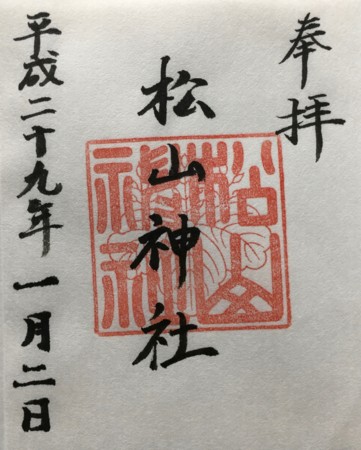 奉拝
松山神社
松山神社
平成二十九年一月二日